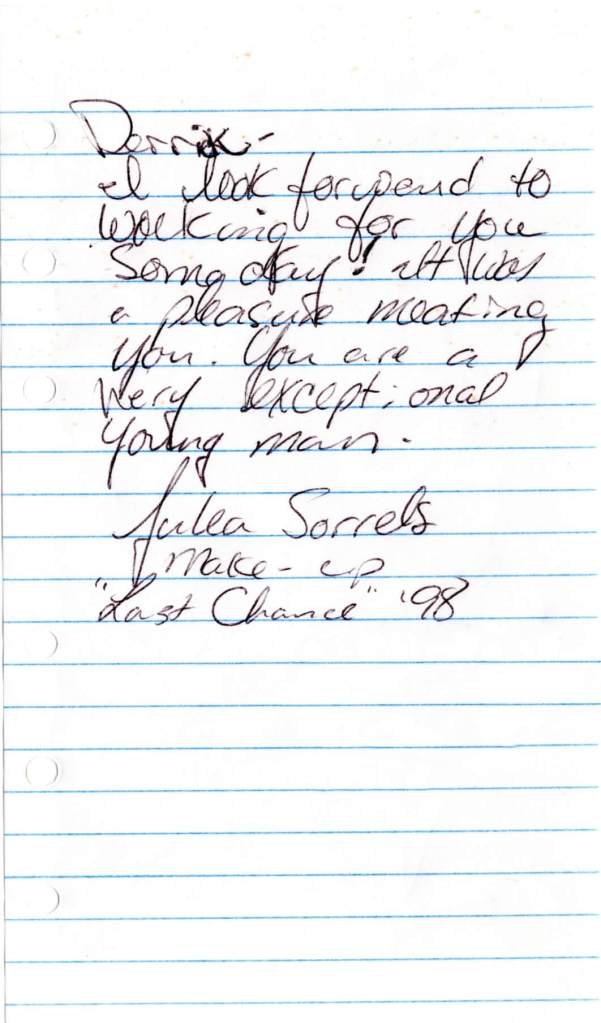 Derrik-
I look forward to
working for you
Someday! It was
a pleasure meating
you. You are a
very exceptional
young man.
Julea Sorrels
Make-up
"Last Chance" '98